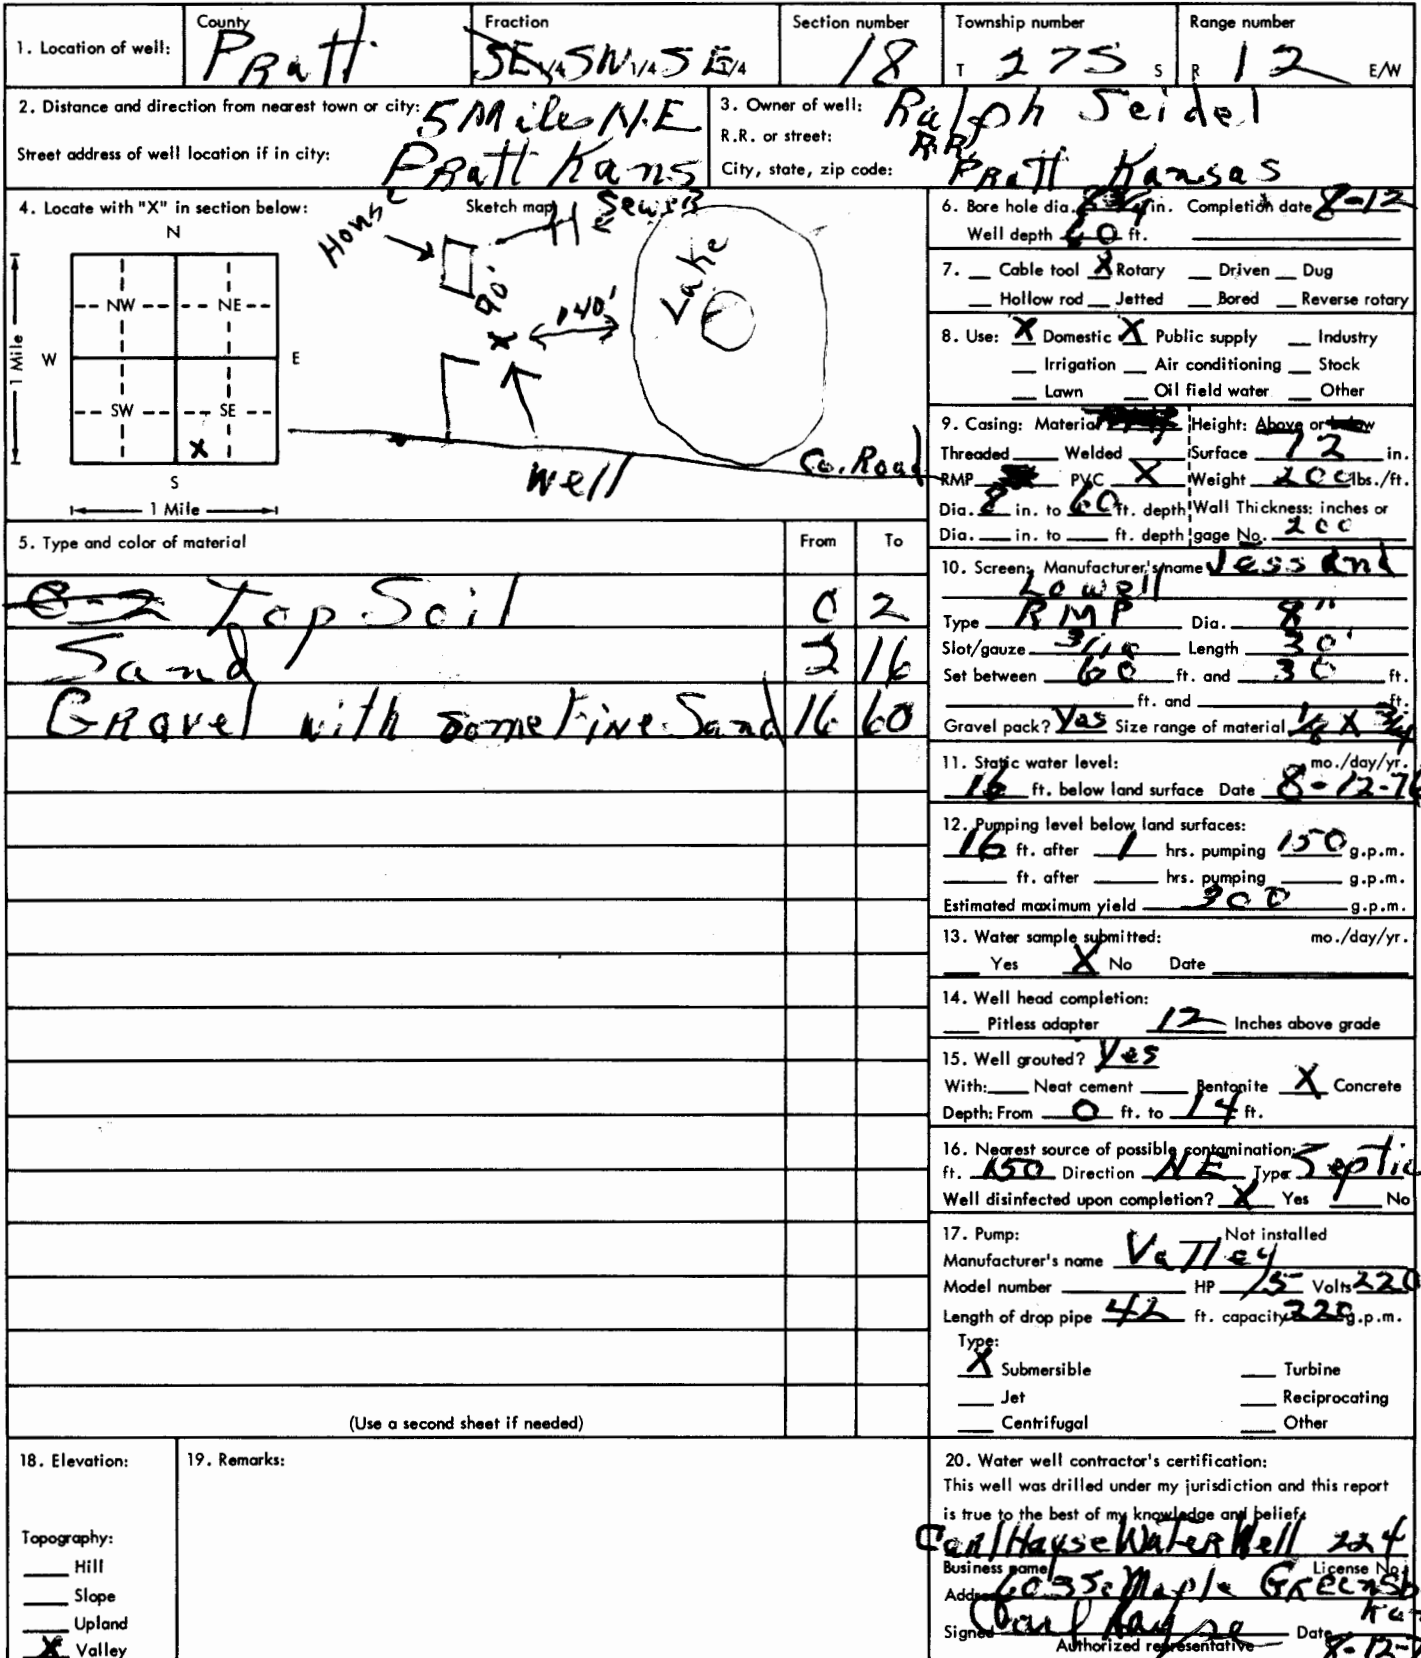 County Fraction Section number Township number Range number
1. Location of well: Pratt SE 1/4 SW 1/4 SE 1/4 18 T 27S S R 12 E/W
2. Distance and direction from nearest town or city: 5 Mile N.E
Street address of well location if in city: Pratt Kans
3. Owner of well: Ralph Seidel
R.R. or street: R.R.
City, state, zip code: Pratt Kansas
4. Locate with "X" in section below: Sketch map
N
NW NE
W E
SW SE
X
S
1 Mile
1 Mile
House Sewer
90'
X 140' Lake
Well
Co. Road
5. Type and color of material From To
0-2 Top Soil 0 2
Sand 2 16
Gravel with some Fine Sand 16 60
(Use a second sheet if needed)
6. Bore hole dia. in. Completion date 8-12
Well depth 60 ft.
7. Cable tool X Rotary Driven Dug
Hollow rod Jetted Bored Reverse rotary
8. Use: X Domestic X Public supply Industry
Irrigation Air conditioning Stock
Lawn Oil field water Other
9. Casing: Material Height: Above or below
Threaded Welded Surface 12 in.
RMP PVC X Weight 200 lbs./ft.
Dia. 8 in. to 60 ft. depth Wall Thickness: inches or
Dia. in. to ft. depth gage No. 200
10. Screen: Manufacturer's name Jess And
Lowell
Type RMP Dia. 8"
Slot/gauze 3/16 Length 30'
Set between 60 ft. and 30 ft.
ft. and ft.
Gravel pack? Yes Size range of material 1/8 X 3/4
11. Static water level: mo./day/yr.
16 ft. below land surface Date 8-12-76
12. Pumping level below land surfaces:
16 ft. after 1 hrs. pumping 150 g.p.m.
ft. after hrs. pumping g.p.m.
Estimated maximum yield 300 g.p.m.
13. Water sample submitted: mo./day/yr.
Yes X No Date
14. Well head completion:
Pitless adapter 12 Inches above grade
15. Well grouted? Yes
With: Neat cement Bentonite X Concrete
Depth: From 0 ft. to 14 ft.
16. Nearest source of possible contamination:
ft. 150 Direction NE Type Septic
Well disinfected upon completion? X Yes No
17. Pump: Not installed
Manufacturer's name Valley
Model number HP 15 Volts 220
Length of drop pipe 42 ft. capacity 220 g.p.m.
Type:
X Submersible Turbine
Jet Reciprocating
Centrifugal Other
18. Elevation:
Topography:
Hill
Slope
Upland
X Valley
19. Remarks:
20. Water well contractor's certification:
This well was drilled under my jurisdiction and this report
is true to the best of my knowledge and belief.
Carl Hayse Water Well 224
Business name License No.
Address Maple Greensb
Signed Carl Hayse Date 8-12-7
Authorized representative